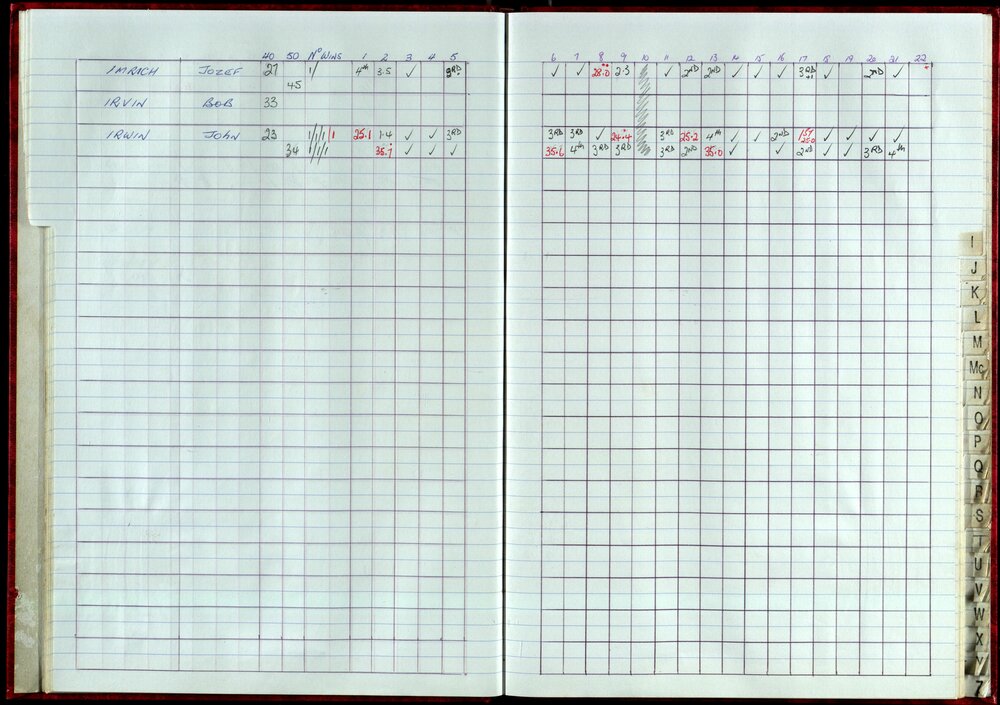 40 50 No WINS 1 2 3 4 5 6 7 8 9 10 11 12 13 14 15 16 17 18 19 20 21 22
IMRICH JOZEF 27 1/ 4th 3.5 ✓ 3RD ✓ ✓ 28.0 2.3 ✓ 2ND 2ND ✓ ✓ ✓ 3RD ✓ 2ND ✓
45
IRVIN BOB 33
IRWIN JOHN 23 1/1/1 1 25.1 1.4 ✓ ✓ 3RD 3RD 3RD ✓ 24.4 3RD 25.2 4th ✓ ✓ 2ND 1ST 25.0 ✓ ✓ ✓ ✓
34 1/1/1 35.1 ✓ ✓ ✓ 35.6 4th 3RD 3RD 3RD 2ND 35.0 ✓ ✓ 2ND ✓ ✓ 3RD 4th
I
J
K
L
M
Mc
N
O
P
Q
R
S
T
U
V
W
X
Y
Z